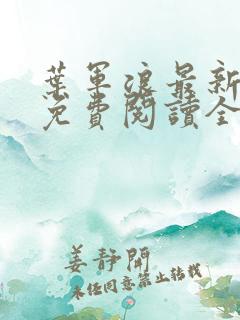 葉軍浪最新
免費閱讀全
姜靜聞
未經同意禁止轉載